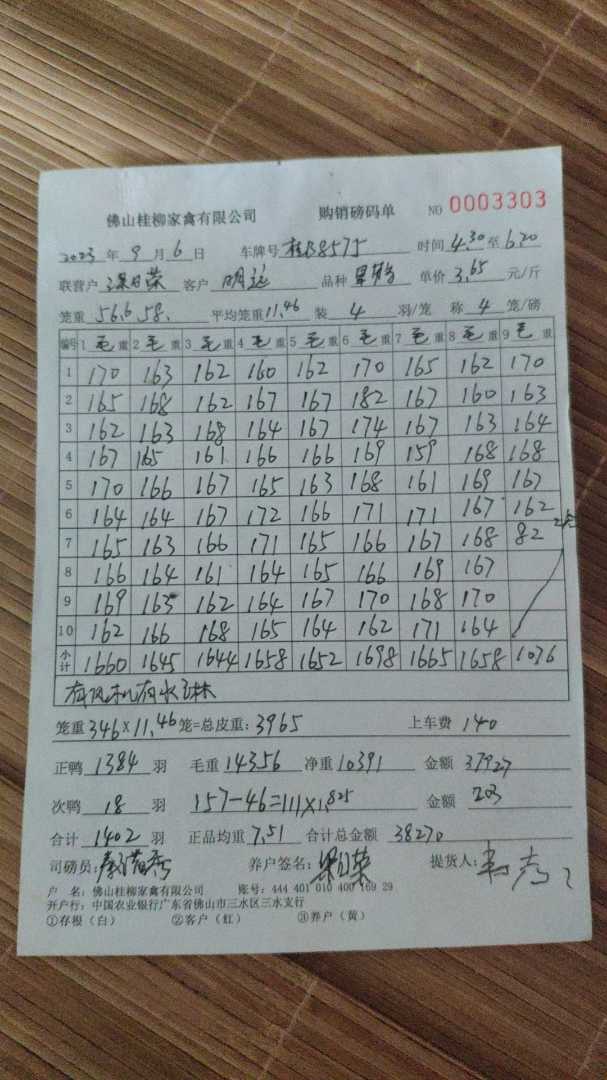 佛山桂柳家禽有限公司 购销磅码单 NO 0003303
2023年9月6日 车牌号 桂B8575 时间4.30至6.20
联营户 梁日荣 客户 明远 品种 单价3.65元/斤
笼重 56.6.58. 平均笼重11.46 装 4 羽/笼 称 4 笼/磅
编号 1 毛重 2 毛重 3 毛重 4 毛重 5 毛重 6 毛重 7 毛重 8 毛重 9 毛重
1 170 163 162 160 162 170 165 162 170
2 165 168 162 167 167 182 167 160 163
3 162 163 168 164 167 174 167 163 164
4 167 165 161 166 166 169 159 168 168
5 170 166 167 165 163 168 161 169 167
6 164 164 167 172 166 171 171 167 162
7 165 163 166 171 165 166 167 168 82 2笼
8 166 164 161 164 165 166 169 167
9 169 163 162 164 167 170 168 170
10 162 166 168 165 164 162 171 164
小计 1660 1645 1644 1658 1652 1698 1665 1658 1076
有风机有水
笼重346×11.46笼=总皮重:3965 上车费 140
正鸭 1384 羽 毛重 14356 净重 10391 金额 37927
次鸭 18 羽 157-46=111×1.825 金额 203
合计 1402 羽 正品均重 7.51 合计总金额 38270
司磅员: 养户签名: 梁日荣 提货人:
户 名:佛山桂柳家禽有限公司 账号:444 401 010 400 169 29
开户行:中国农业银行广东省佛山市三水区三水支行
①存根(白) ②客户(红) ③养户(黄)